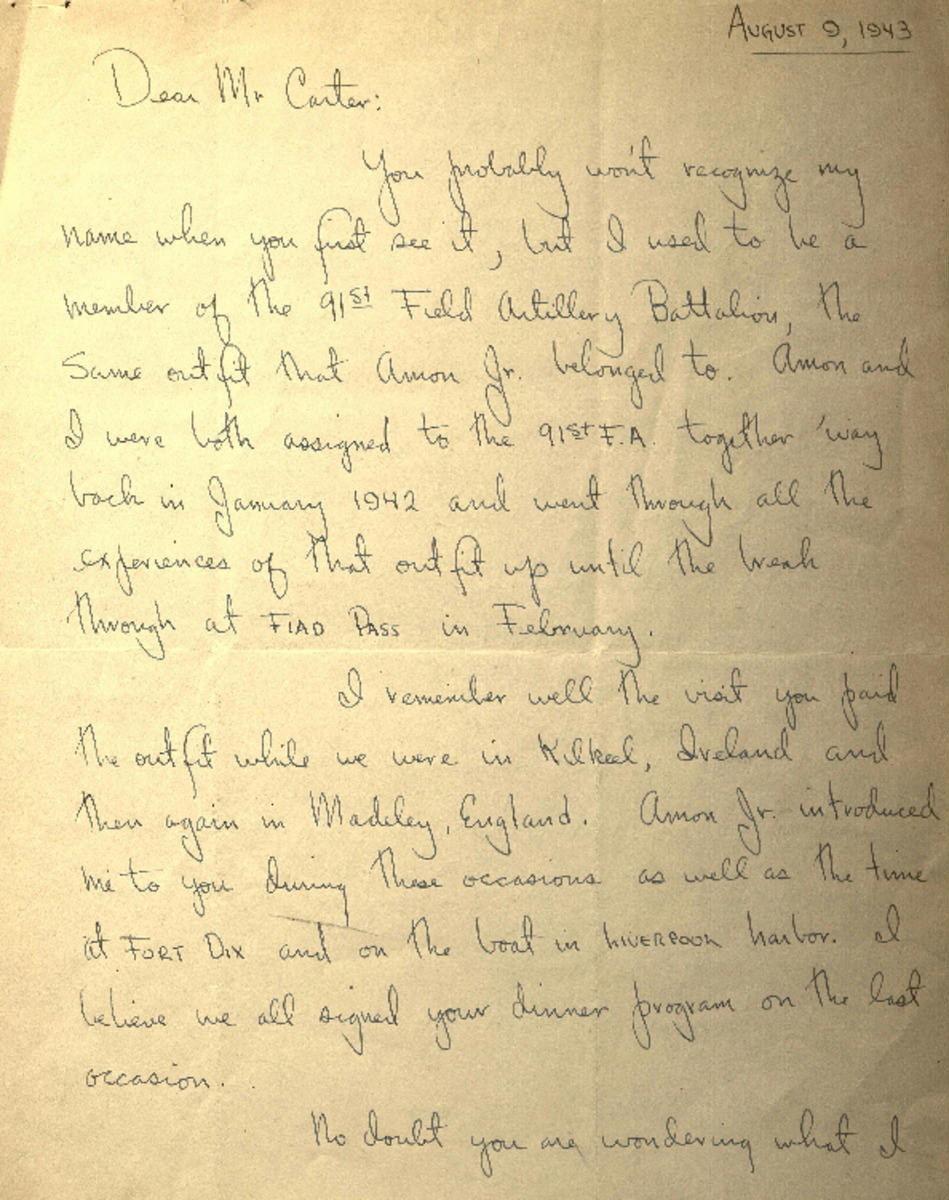 August 9, 1943
Dear Mr Carter:
You probably won't recognize my
name when you first see it, but I used to be a
member of the 91st Field Artillery Battalion, the
Same outfit that Amon Jr. belonged to. Amon and
I were both assigned to the 91st F.A. together 'way
back in January 1942 and went through all the
experiences of that outfit up until the break
through at FIAD PASS in February.
I remember well the visit you paid
the outfit while we were in Kilkeel, Ireland and
then again in Madeley, England. Amon Jr. introduced
me to you during these occasions as well as the time
at FORT DIX and on the boat in LIVERPOOL harbor. I
believe we all signed your dinner program on the last
occasion.
No doubt you are wondering what I